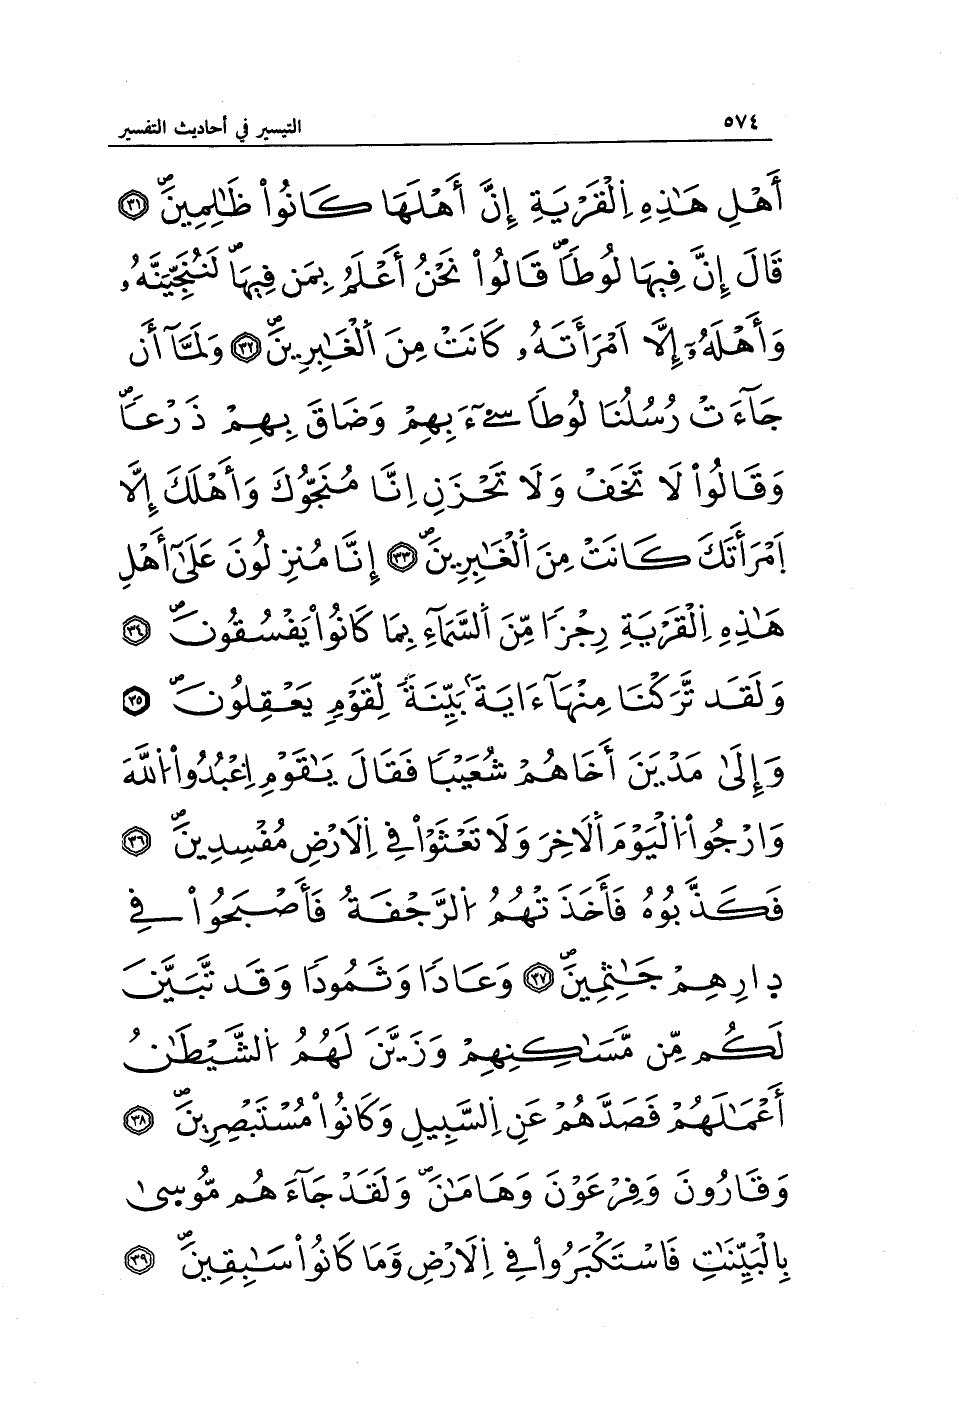 ٥٧٤
التيسير في أحاديث التفسير
أَهْلِ هَٰذِهِ اِ۬لْقَرْيَةِ إِنَّ أَهْلَهَا كَانُواْ ظَٰلِمِينَۖ ٣١
قَالَ إِنَّ فِيهَا لُوطاٗۖ قَالُواْ نَحْنُ أَعْلَمُ بِمَن فِيهَاۖ لَنُنَجِّيَنَّهُۥ
وَأَهْلَهُۥٓ إِلَّا اَ۪مْرَأَتَهُۥ كَانَتْ مِنَ اَ۬لْغَٰبِرِينَۖ ٣٢ وَلَمَّآ أَن
جَآءَتْ رُسُلُنَا لُوطاٗ سِےٓءَ بِهِمْ وَضَاقَ بِهِمْ ذَرْعاٗۖ
وَقَالُواْ لَا تَخَفْ وَلَا تَحْزَنِ اِنَّا مُنَجُّوكَ وَأَهْلَكَ إِلَّا
اَ۪مْرَأَتَكَ كَانَتْ مِنَ اَ۬لْغَٰبِرِينَۖ ٣٣ إِنَّا مُنزِلُونَ عَلَىٰٓ أَهْلِ
هَٰذِهِ اِ۬لْقَرْيَةِ رِجْزاٗ مِّنَ اَ۬لسَّمَآءِ بِمَا كَانُواْ يَفْسُقُونَۖ ٣٤
وَلَقَد تَّرَكْنَا مِنْهَآ ءَايَةَۢ بَيِّنَةٗ لِّقَوْمٖ يَعْقِلُونَۖ ٣٥
وَإِلَىٰ مَدْيَنَ أَخَاهُمْ شُعَيْباٗ فَقَالَ يَٰقَوْمِ اِ۟عْبُدُواْ اُ۬للَّهَ
وَارْجُواْ اُ۬لْيَوْمَ اَ۬لَاخِرَ وَلَا تَعْثَوْاْ فِي اِ۬لَارْضِ مُفْسِدِينَۖ ٣٦
فَكَذَّبُوهُ فَأَخَذَتْهُمُ اُ۬لرَّجْفَةُ فَأَصْبَحُواْ فِي
دِارِهِمْ جَٰثِمِينَۖ ٣٧ وَعَاداٗ وَثَمُوداٗ وَقَد تَّبَيَّنَ
لَكُم مِّن مَّسَٰكِنِهِمْ وَزَيَّنَ لَهُمُ اُ۬لشَّيْطَٰنُ
أَعْمَٰلَهُمْ فَصَدَّهُمْ عَنِ اِ۬لسَّبِيلِ وَكَانُواْ مُسْتَبْصِرِينَۖ ٣٨
وَقَارُونَ وَفِرْعَوْنَ وَهَامَٰنَۖ وَلَقَدْ جَآءَهُم مُّوسىٰ
بِالْبَيِّنَٰتِ فَاسْتَكْبَرُواْ فِي اِ۬لَارْضِ وَمَا كَانُواْ سَٰبِقِينَۖ ٣٩